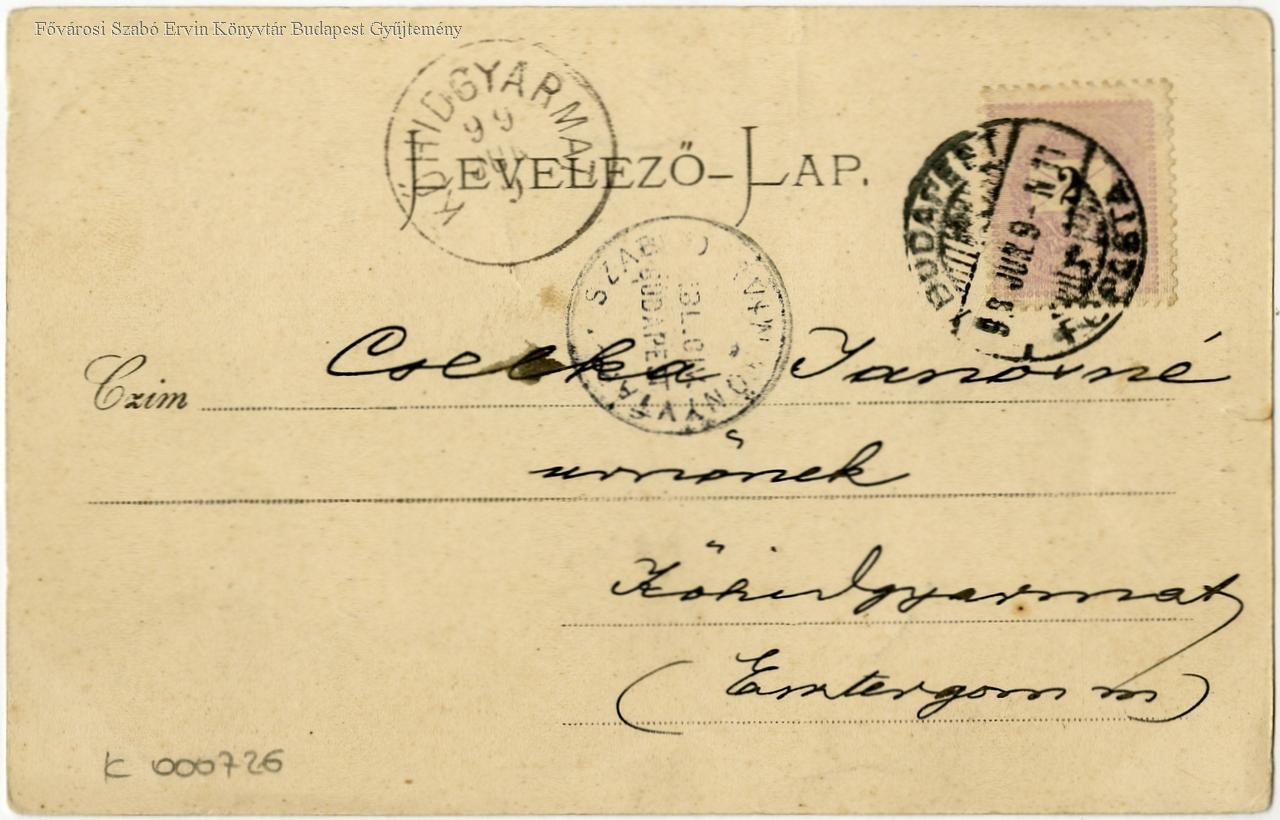 Fővárosi Szabó Ervin Könyvtár Budapest Gyűjtemény
KŐHIDGYARMAT
99
LEVELEZŐ-LAP.
BUDAPEST
JUN 9
SZABÓ
BUDAPEST
KÖNYVTÁR
Czim Cselka Janosné
urnőnek
Kőhidgyarmat
(Esztergom m)
K 000726